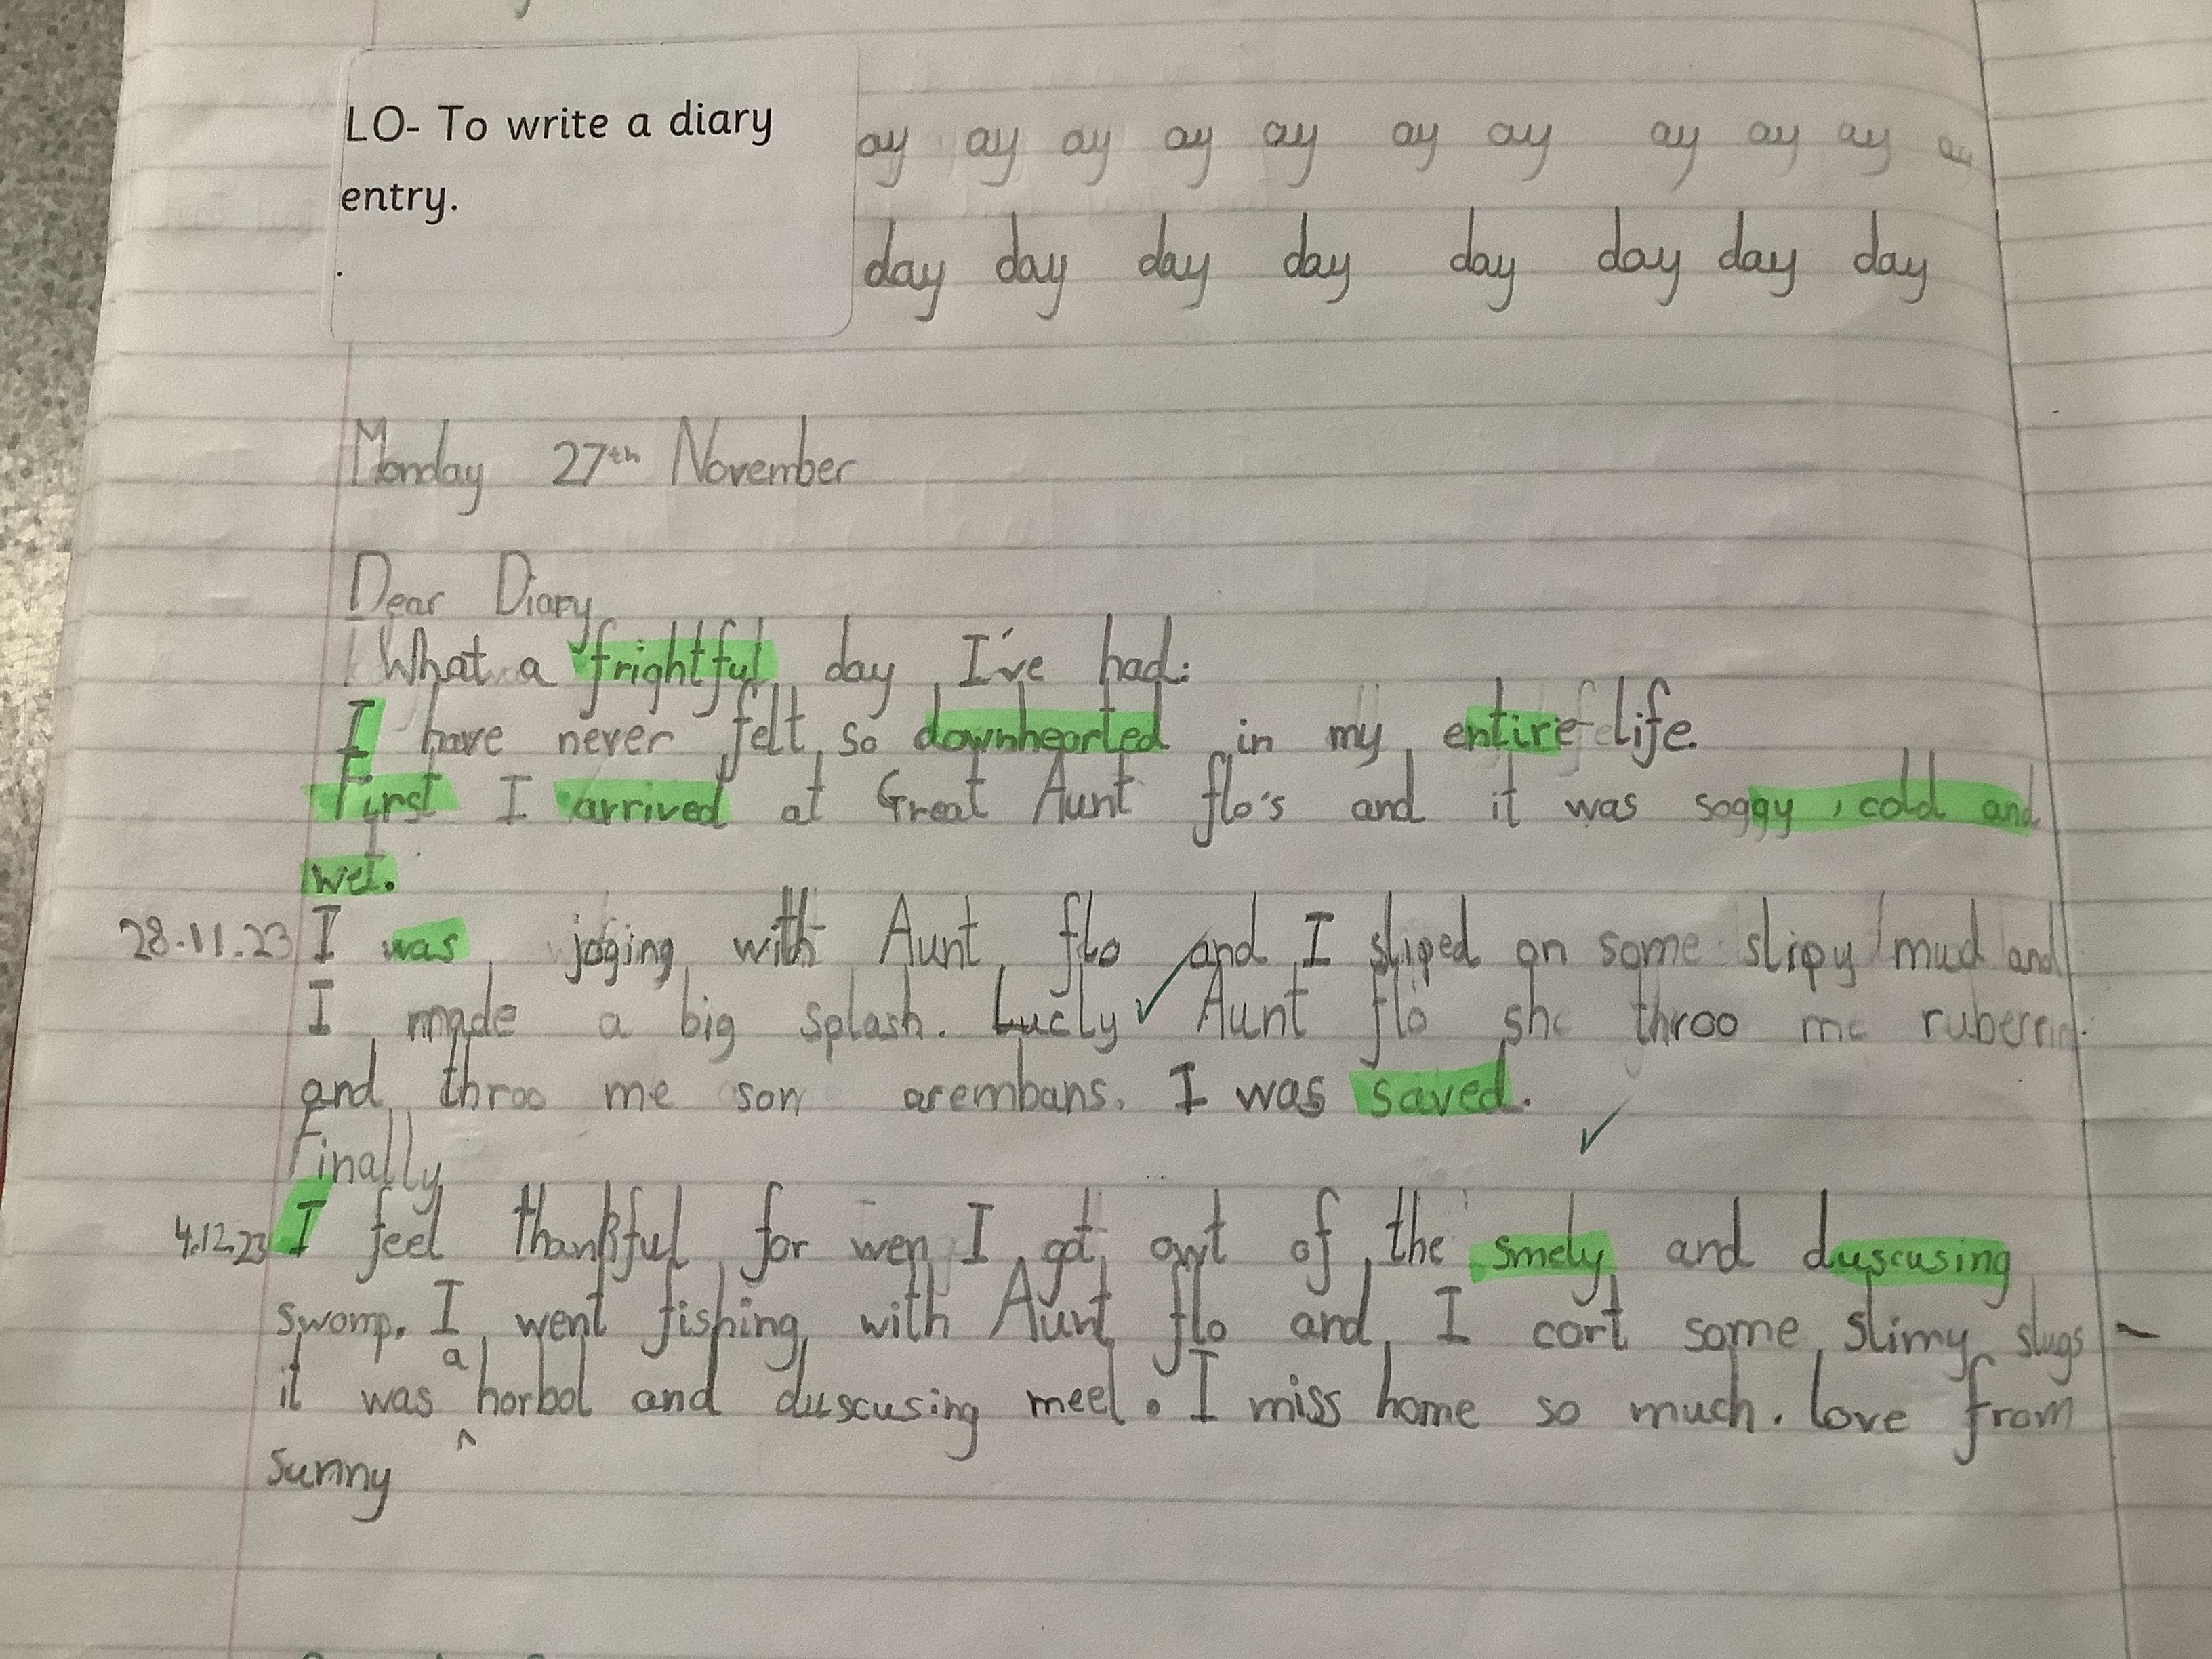 LO- To write a diary
entry.
.
ay ay ay ay ay ay ay ay ay ay ay
day day day day day day day day
Monday 27th November
Dear Diary
What a frightful day I've had:
I have never felt so downhearted in my entire life.
First I arrived at Great Aunt flo's and it was soggy, cold and
wet.
28.11.23 I was joging with Aunt flo and I sliped on some slipy mud and
I made a big splash. Lucly Aunt flo she throo me
and throo me som arembans. I was saved.
Finally
4.12.23 I feel thankful for wen I got owt of the smely and duscusing
swomp. I went fishing with Aunt flo and I cort some slimy slugs -
it was a horbol and duscusing meel. I miss home so much. love from
sunny